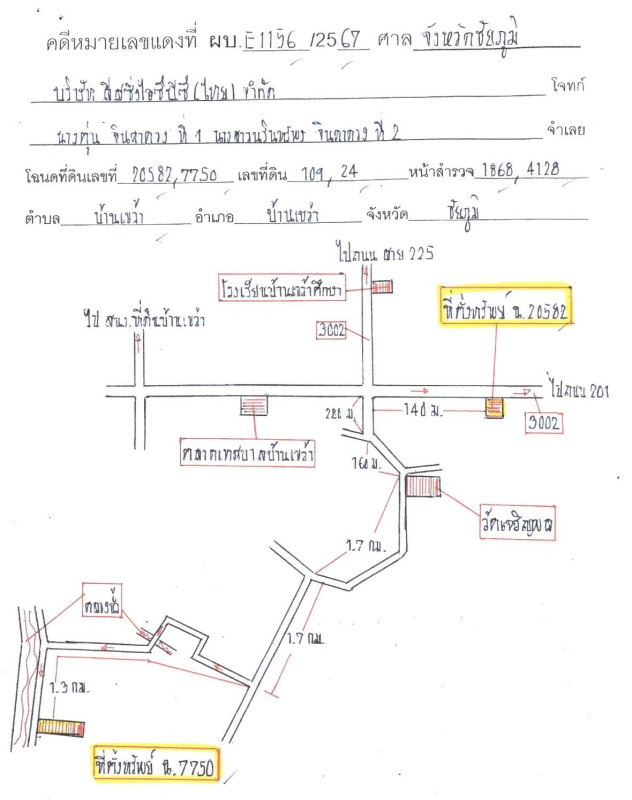 คดีหมายเลขแดงที่ ผบ.E1156 /2567 ศาล จังหวัดชัยภูมิ
บริษัท ลีสซิ่งไอซีบีซี (ไทย) จำกัด โจทก์
จินดาดวง ที่ 1 นางสาวนรินทร์พร จินดาดวง ที่ 2 จำเลย
โฉนดที่ดินเลขที่ 20582,7750 เลขที่ดิน 109, 24 หน้าสำรวจ 1868, 4128
ตำบล บ้านเขว้า อำเภอ บ้านเขว้า จังหวัด ชัยภูมิ
ไปถนน สาย 225
โรงเรียนบ้านเขว้าศึกษา
ที่ตั้งทรัพย์ ฉ.20582
ไป สนง.ที่ดินบ้านเขว้า
3002
ไปถนน 201
280 ม.
140 ม.
3002
ตลาดเทศบาลบ้านเขว้า
160 ม.
วัดเจริญผล
1.7 กม.
คลองชี
1.7 กม.
1.3 กม.
ที่ตั้งทรัพย์ ฉ.7750